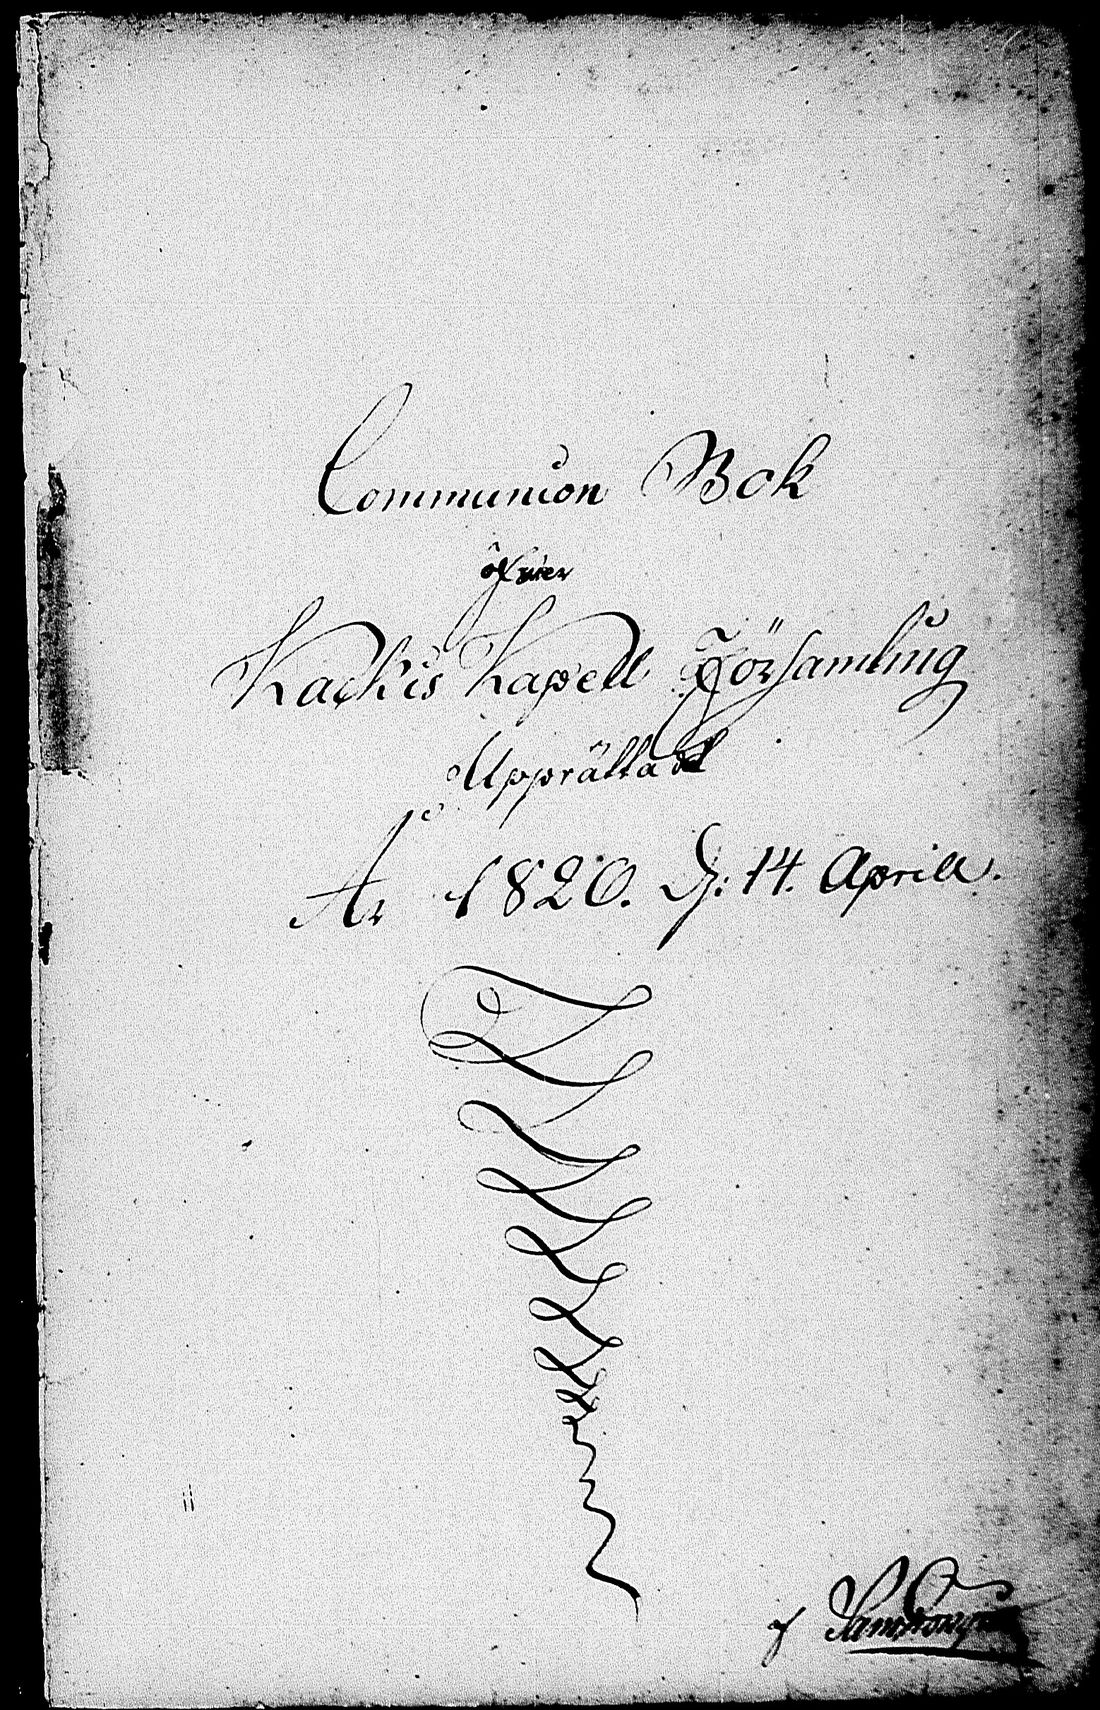 Communion Bok
öfwer
Kackis Kapell Församling
Upprättad
År 1820. D: 14. Aprill.
af